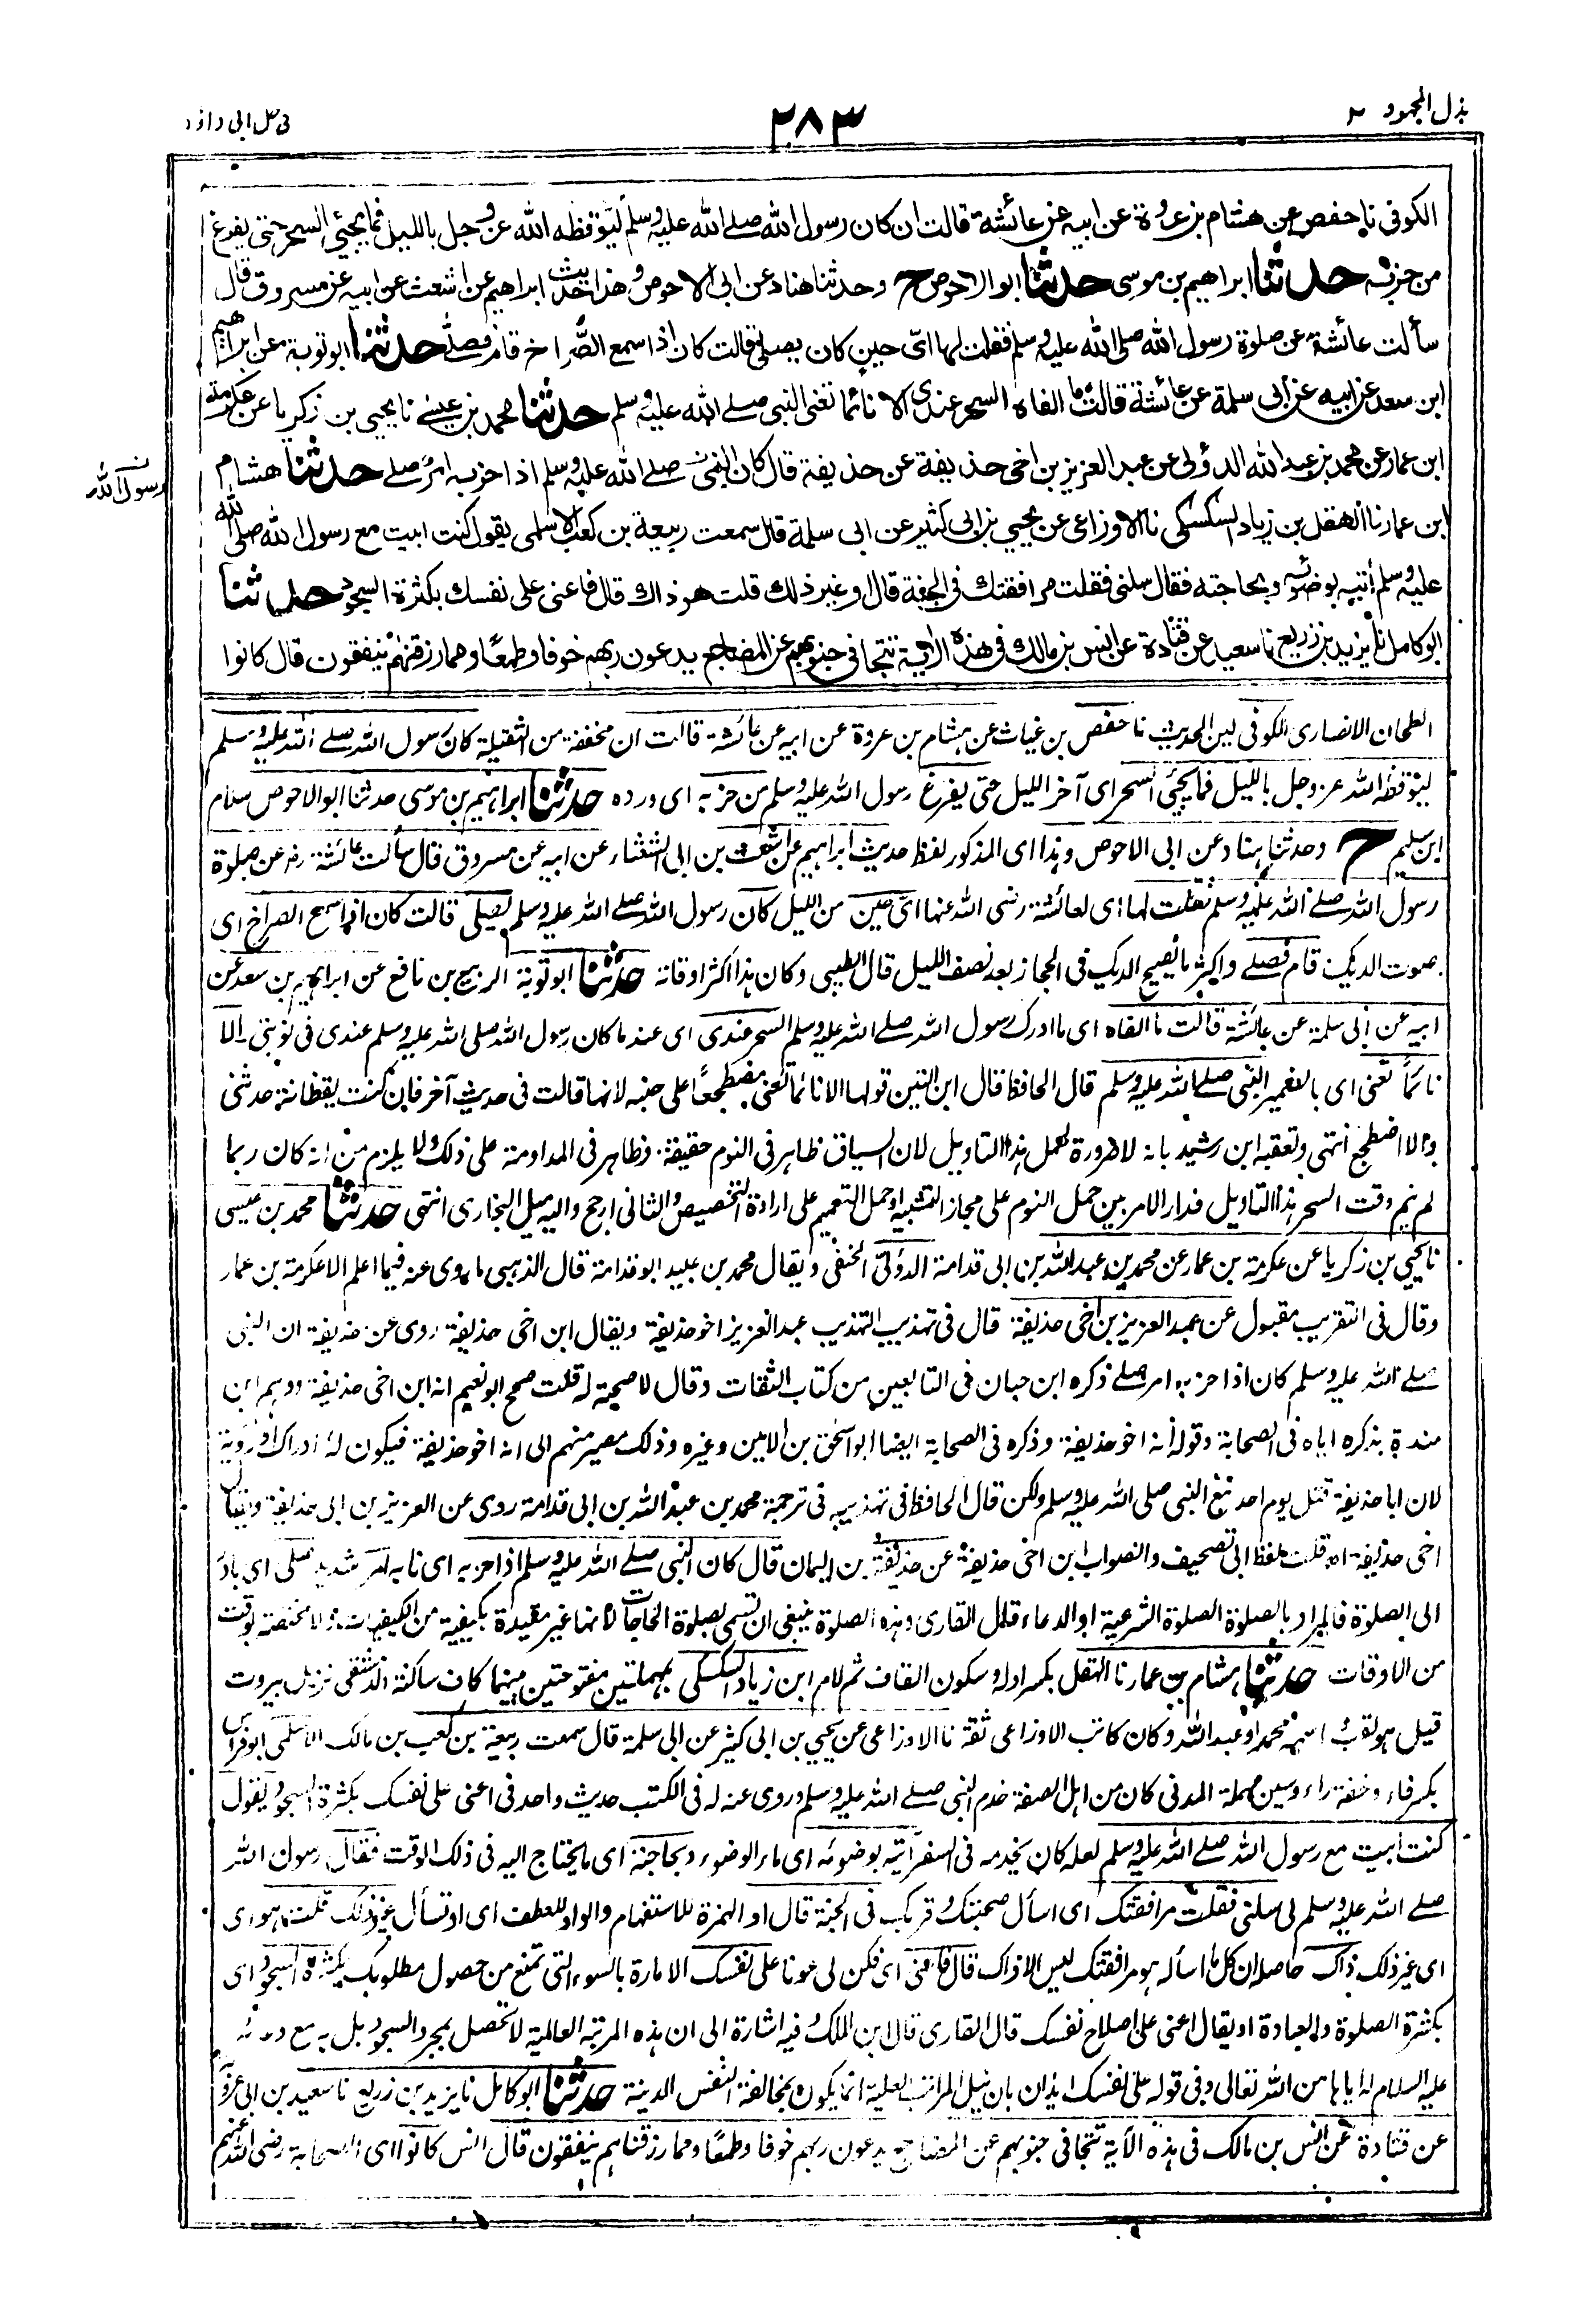 بذل المجهود ٢
٢٨٣
فى حل ابى داؤد
الكوفى نا حفص عن هشام بن عروة عن ابيه عن عائشة قالت ان كان رسول الله صلے الله عليه وسلم ليوقظه الله عز وجل بالليل فما يجيئ السحر حتى يفرغ
من حزبه حدثنا ابراهيم بن موسى حدثنا ابو الاحوص ح وحدثنا هناد عن ابى الاحوص وهذا حديث ابراهيم عن اشعث عن ابيه عن مسروق قال
سألت عائشة عن صلوة رسول الله صلى الله عليه وسلم فقلت لها اىّ حين كان يصلى قالت كان اذا سمع الصُّراخ قام فصلّے حدثنا ابو توبة عن ابراهيم
ابن سعد عن ابيه عن ابى سلمة عن عائشة قالت ما الفاه السحر عندى الا نائما تعنى النبى صلے الله عليه وسلم حدثنا محمد بن عيسے نا يحيى بن زكريا عن عكرمة
ابن عمار عن محمد بن عبد الله الدؤلى عن عبد العزيز بن اخى حذيفة عن حذيفة قال كان النبى صلے الله عليه وسلم اذا حزبه امرٌ صلے حدثنا هشام
ن رسول الله
ابن عمار نا الهقل بن زياد السكسكى نا الاوزاعى عن يحيى بن ابى كثير عن ابى سلمة قال سمعت ربيعة بن كعب الاسلمى يقول كنت ابيت مع رسول الله صلى الله
عليه وسلم اٰتيه بوضوئه وبحاجته فقال سلنى فقلت مرافقتك فى الجنة قال او غير ذلك قلت هو ذاك قال فاعنى على نفسك بكثرة السجود حدثنا
ابو كامل نا يزيد بن زريع نا سعيد عن قتادة عن انس بن مالك فى هذه الاٰية تتجافى جنوبهم عن المضاجع يدعون ربهم خوفا وطمعًا ومما رزقنٰهم ينفقون قال كانوا
الطحان الانصارى الكوفى لين الحديث نا حفص بن غياث عن هشام بن عروة عن ابيه عن عائشة قالت ان مخففة من الثقيلة كان رسول الله صلے الله عليه وسلم
ليوقظه الله عز وجل بالليل فما يجيئ السحر اى آخر الليل حتى يفرغ رسول الله عليه وسلم من حزبه اى ورده حدثنا ابراهيم بن موسى حدثنا ابو الاحوص سلام
ابن سليم ح وحدثنا هناد عن ابى الاحوص وهذا اى المذكور لفظ حديث ابراهيم عن اشعث بن ابى الشعثاء عن ابيه عن مسروق قال سألت عائشة رض عن صلوة
رسول الله صلے الله عليه وسلم فقلت لها اى لعائشة رضى الله عنها اىّ حين من الليل كان رسول الله صلے الله عليه وسلم يصلى قالت كان اذا سمع الصراخ اى
صوت الديك قام فصلے واكثر ما يصيح الديك فى الحجاز بعد نصف الليل قال الطيبى وكان هذا اكثر اوقاته حدثنا ابو توبة الربيع بن نافع عن ابراهيم بن سعد عن
ابيه عن ابى سلمة عن عائشة قالت ما الفاه اى ما ادرك رسول الله صلے الله عليه وسلم السحر عندى اى عند ما كان رسول الله صلى الله عليه وسلم عندى فى نوبتى الا
نائمًا تعنى اى بالضمير النبى صلے الله عليه وسلم قال الحافظ قال ابن التين قولها الا نائما تعنى مضطجعًا على جنبه لانها قالت فى حديث آخر فان كنت يقظانة حدثنى
والا اضطجع انتهى وتعقبه ابن رشيد بانه لا ضرورة لحمل هذا التاويل لان السياق ظاهر فى النوم حقيقة وظاهر فى المداومة على ذلك ولا يلزم من انه كان ربما
لم ينم وقت السحر هذا التاويل فدار الامر بين حمل النوم على مجاز التشبيه او حمل التعميم على ارادة التخصيص والثانى ارجح واليه ميل البخارى انتهى حدثنا محمد بن عيسى
نا يحيى بن زكريا عن عكرمة بن عمار عن محمد بن عبد الله بن ابى قدامة الدؤلى الحنفى ويقال محمد بن عبيد ابو قدامة قال الذهبى ما روى عنه فيما اعلم الا عكرمة بن عمار
وقال فى التقريب مقبول عن عبد العزيز بن اخى حذيفة قال فى تهذيب التهذيب عبد العزيز اخو حذيفة ويقال ابن اخى حذيفة روى عن حذيفة ان النبى
صلے الله عليه وسلم كان اذا حزبه امر صلے ذكره ابن حبان فى التابعين من كتاب الثقات وقال لا صحبة له قلت صحح ابو نعيم انه ابن اخى حذيفة ووهم ابن
مندة بذكره اياه فى الصحابة وقوله انه اخو حذيفة وذكره فى الصحابة ايضا ابو اسحق بن الامين وغيره وذلك مصير منهم الى انه اخو حذيفة فيكون له ادراك او رؤية
لان ابا حذيفة قتل يوم احد مع النبى صلى الله عليه وسلم ولكن قال الحافظ فى تهذيبه فى ترجمة محمد بن عبد الله بن ابى قدامة روى عن العزيز بن ابى حذيفة ويقال
اخى حذيفة اه قلت لفظ ابى تصحيف والصواب ابن اخى حذيفة عن حذيفة بن اليمان قال كان النبى صلے الله عليه وسلم اذا حزبه اى نابه امر شديد صلى اى بادر
الى الصلوة فالمراد بالصلوة الصلوة الشرعية او الدعاء قال القارى وهذه الصلوة ينبغى ان تسمى بصلوة الحاجات لانها غير مقيدة بكيفية من الكيفيات ولا مختصة بوقت
من الاوقات حدثنا هشام بن عمار نا الهقل بكسر اوله وسكون القاف ثم لام ابن زياد السكسكى بمهملتين مفتوحتين بينهما كاف ساكنة الدمشقى نزيل بيروت
قيل هو لقب اسمه محمد او عبد الله وكان كاتب الاوزاعى ثقة نا الاوزاعى عن يحيى بن ابى كثير عن ابى سلمة قال سمعت ربيعة بن كعب بن مالك الاسلمى ابو فراس
بكسر فاء وخفة راء وسين مهملة المدنى كان من اهل الصفة خدم النبى صلے الله عليه وسلم وروى عنه له فى الكتب حديث واحد فى اعنى على نفسك بكثرة السجود يقول
كنت ابيت مع رسول الله صلے الله عليه وسلم لعله كان يخدمه فى السفر آتيه بوضوئه اى ماء الوضوء وبحاجته اى ما يحتاج اليه فى ذلك الوقت فقال رسول الله
صلے الله عليه وسلم لى سلنى فقلت مرافقتك اى اسأل صحبتك وقربك فى الجنة قال او الهمزة للاستفهام والواو للعطف اى او تسأل غير ذلك قلت هو اى
اى غير ذلك ذاك حاصله ان كل ما اسأله هو مرافقتك ليس الا ذاك قال فاعنى اى فكن لى عونا على نفسك الامارة بالسوء التى تمنع من حصول مطلوبك بكثرة السجود اى
بكثرة الصلوة والعبادة او يقال اعنى على اصلاح نفسك قال القارى قال ابن الملك وفيه اشارة الى ان هذه المرتبة العالية لا تحصل بمجرد السجود بل به مع دعائه
عليه السلام له اياها من الله تعالى وفى قوله على نفسك ايذان بان نيل المراتب العلية انما يكون بمخالفة النفس الدينة حدثنا ابو كامل نا يزيد بن زريع نا سعيد بن ابى عروبة
عن قتادة عن انس بن مالك فى هذه الآية تتجافى جنوبهم عن المضاجع يدعون ربهم خوفا وطمعًا ومما رزقناهم ينفقون قال انس كانوا اى الصحابة رضى الله عنهم